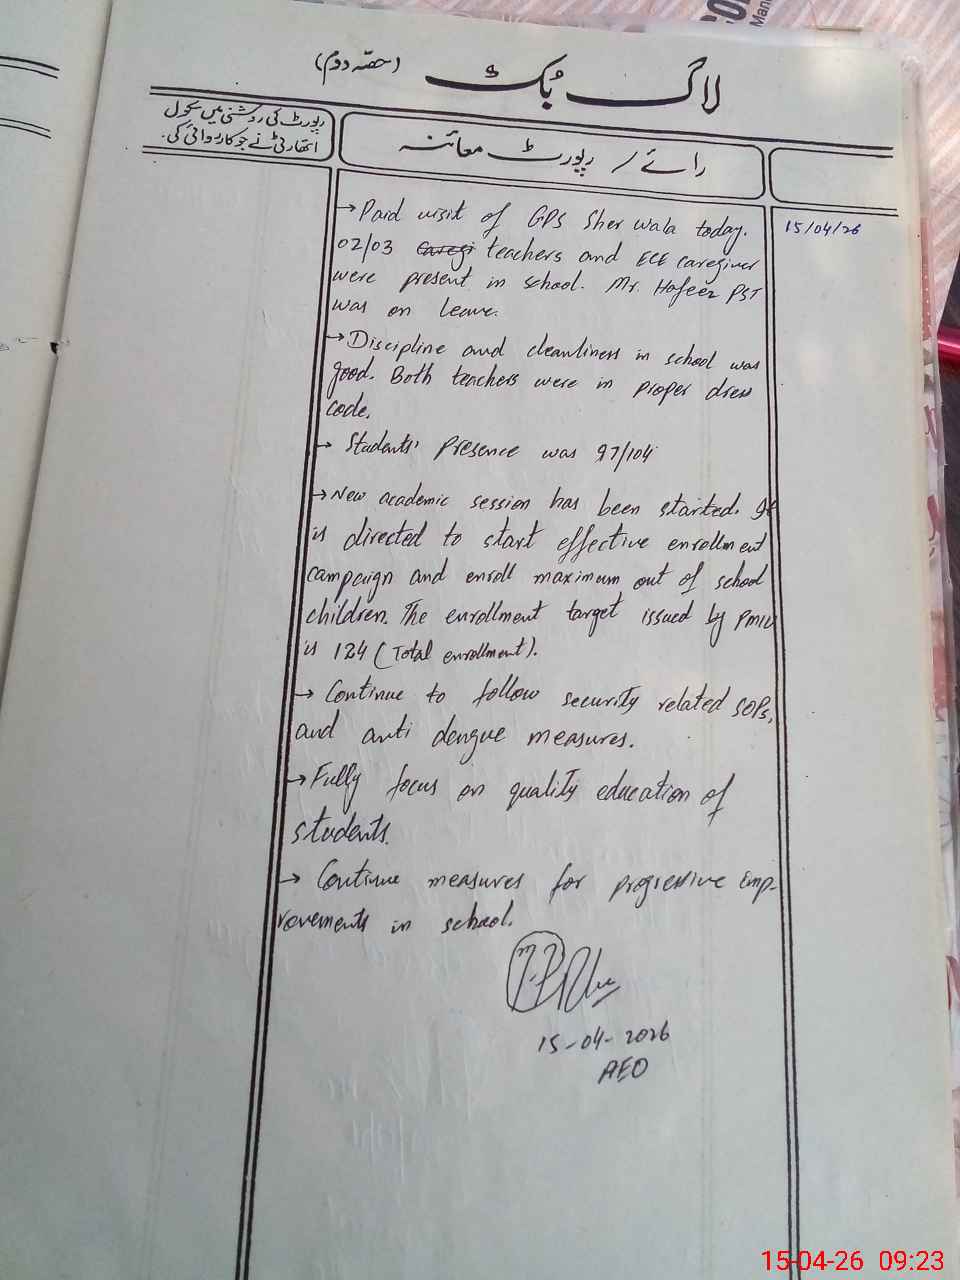 لاگ بُک (حصّہ دوم)
رائے / رپورٹ معائنہ
رپورٹ کی روشنی میں سکول
اتھارٹی نے جو کاروائی کی۔
15/04/26
→ Paid visit of GPS Sher wala today.
02/03 Caregi teachers and ECE caregiver
were present in school. Mr. Hafeez PST
was on leave.
→ Discipline and cleanliness in school was
good. Both teachers were in proper dress
code.
→ Students' Presence was 97/104
→ New academic session has been started. It
is directed to start effective enrollment
campaign and enroll maximum out of school
children. The enrollment target issued by PMIU
is 124 (Total enrollment).
→ Continue to follow security related SOPs,
and anti dengue measures.
→ Fully focus on quality education of
students.
→ Continue measures for progressive emp-
rovements in school.
15-04-2026
AEO
15-04-26 09:23